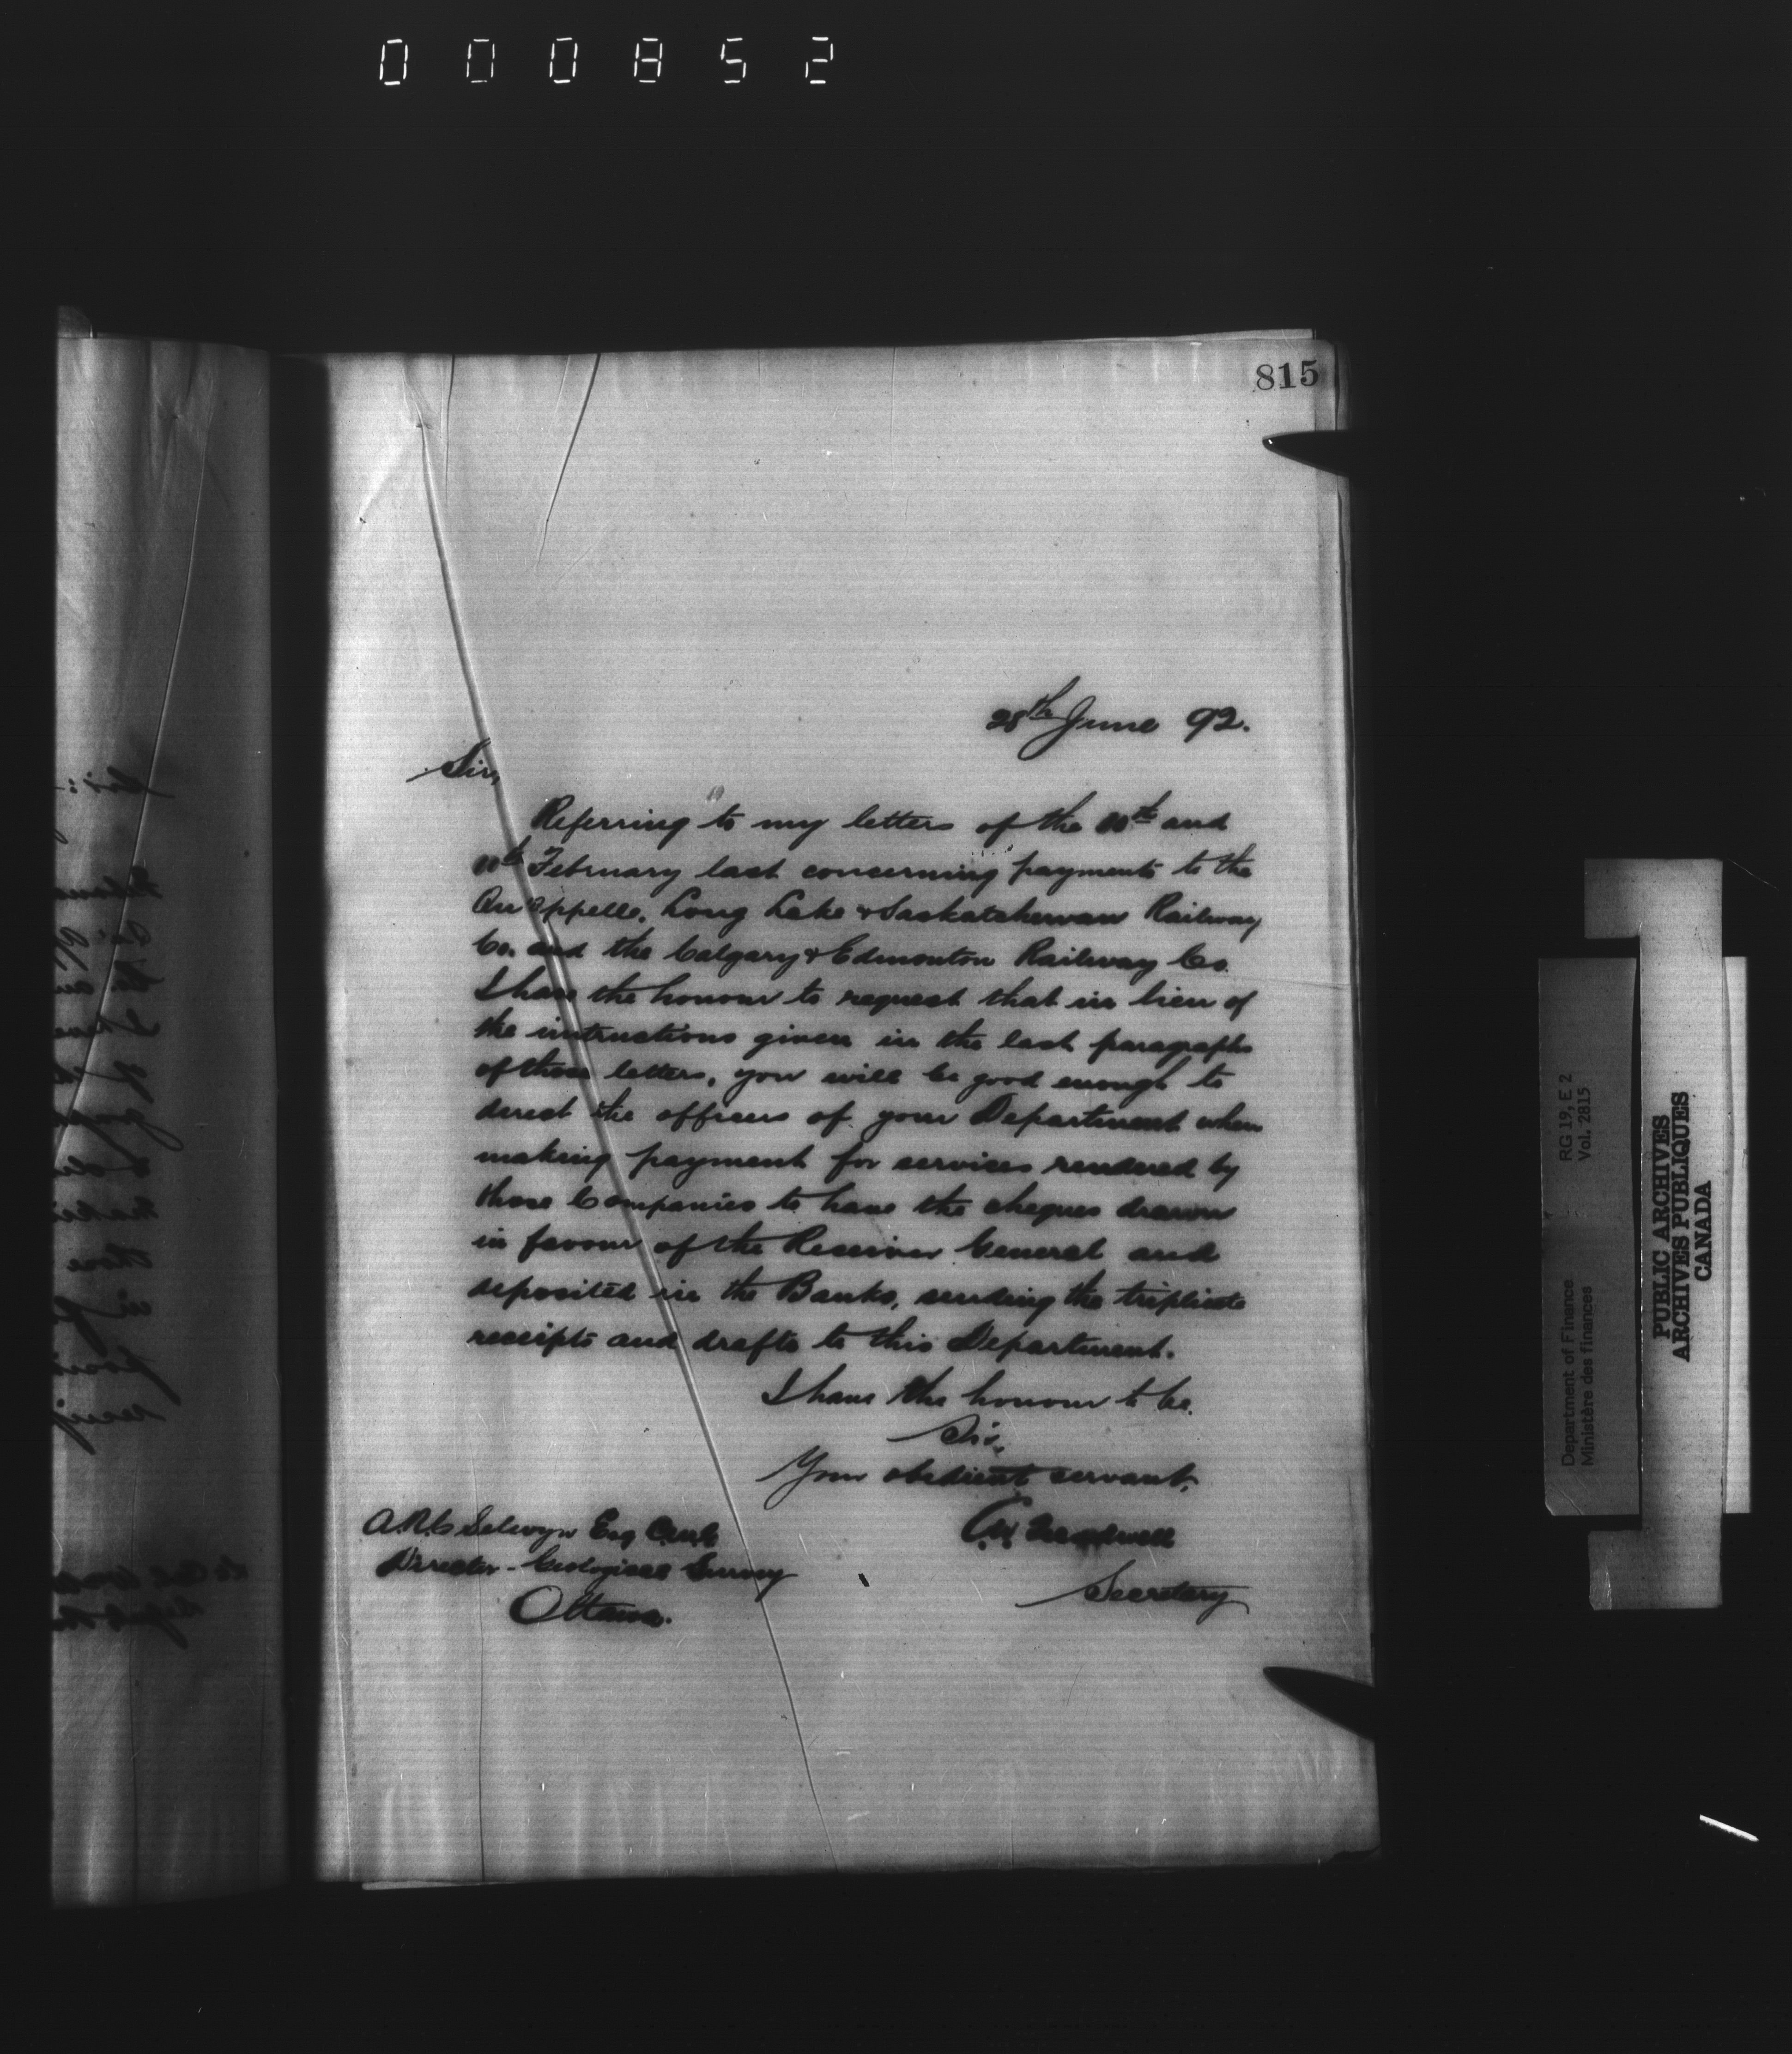 000852
815
28th June 92.
Sir,
Referring to my letters of the 10th and
11th February last concerning payments to the
Qu'Appelle, Long Lake & Saskatchewan Railway
Co. and the Calgary & Edmonton Railway Co.
I have the honour to request that in lieu of
the instructions given in the last paragraphs
of those letters, you will be good enough to
direct the officers of your Department when
making payment for services rendered by
those Companies to have the cheques drawn
in favour of the Receiver General and
deposited in the Banks, sending the triplicate
receipts and drafts to this Department.
I have the honour to be,
Sir,
Your obedient servant,
Secretary
A.R.C Selwyn Esq C.M.G
Director - Geological Survey
Ottawa.
Department of Finance RG 19, E 2
Ministère des finances Vol. 2815
PUBLIC ARCHIVES
ARCHIVES PUBLIQUES
CANADA